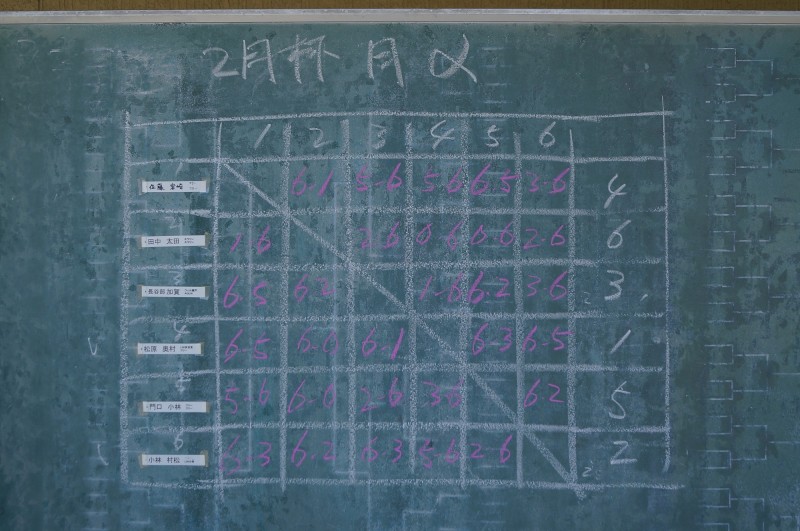 2月杯 月 α
1 2 3 4 5 6
佐藤 6-1 5-6 5-6 6-5 3-6 4
田中 太田 1-6 2 6 0 6 0 6 2 6 6
長谷部 加賀 6-5 6 2 1-6 6-2 3 6 3
松原 奥村 6-5 6-0 6-1 6-3 6-5 1
門口 小林 5-6 6-0 2 6 3 6 6 2 5
小林 村松 6-3 6-2 6-3 5 6 2 6 2